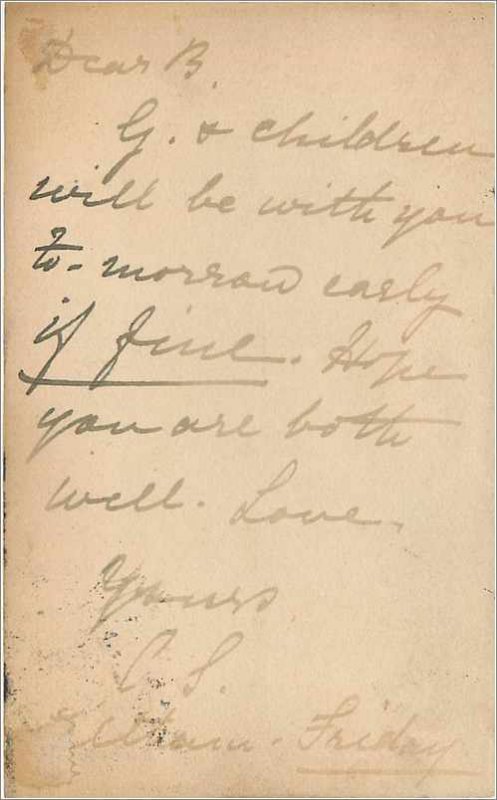 Dear B.
G. & children
will be with you
to-morrow early
if fine. Hope
you are both
well. Love.
Yours
S.
Friday